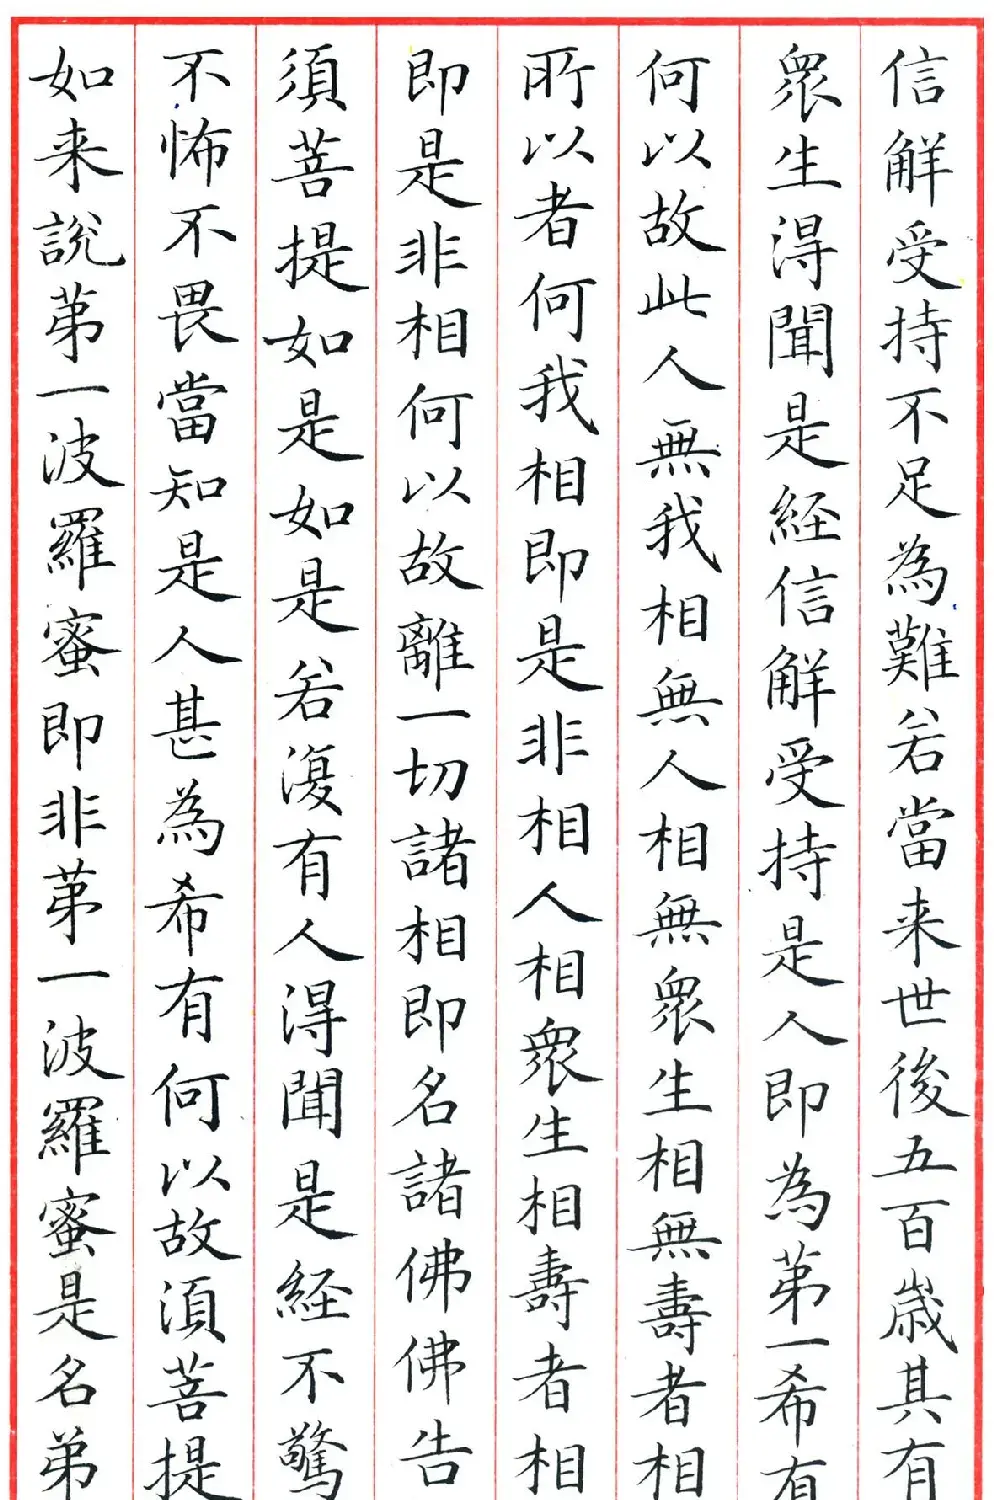 信解受持不足為難若當来世後五百歲其有
衆生得聞是経信解受持是人即為第一希有
何以故此人無我相無人相無衆生相無壽者相
所以者何我相即是非相人相衆生相壽者相
即是非相何以故離一切諸相即名諸佛佛告
須菩提如是如是若復有人得聞是経不驚
不怖不畏當知是人甚為希有何以故須菩提
如来說第一波羅蜜即非第一波羅蜜是名第